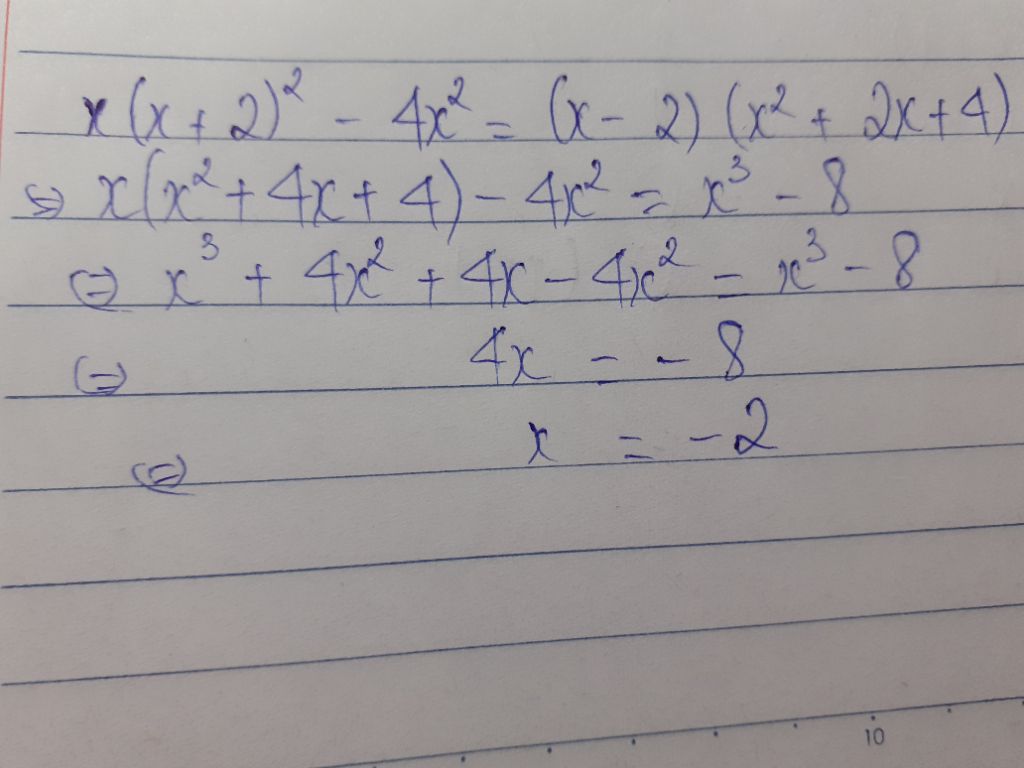 x(x+2)² - 4x² = (x-2)(x²+2x+4)
⇔ x(x²+4x+4) - 4x² = x³ - 8
⇔ x³ + 4x² + 4x - 4x² = x³ - 8
⇔ 4x = -8
⇔ x = -2
10